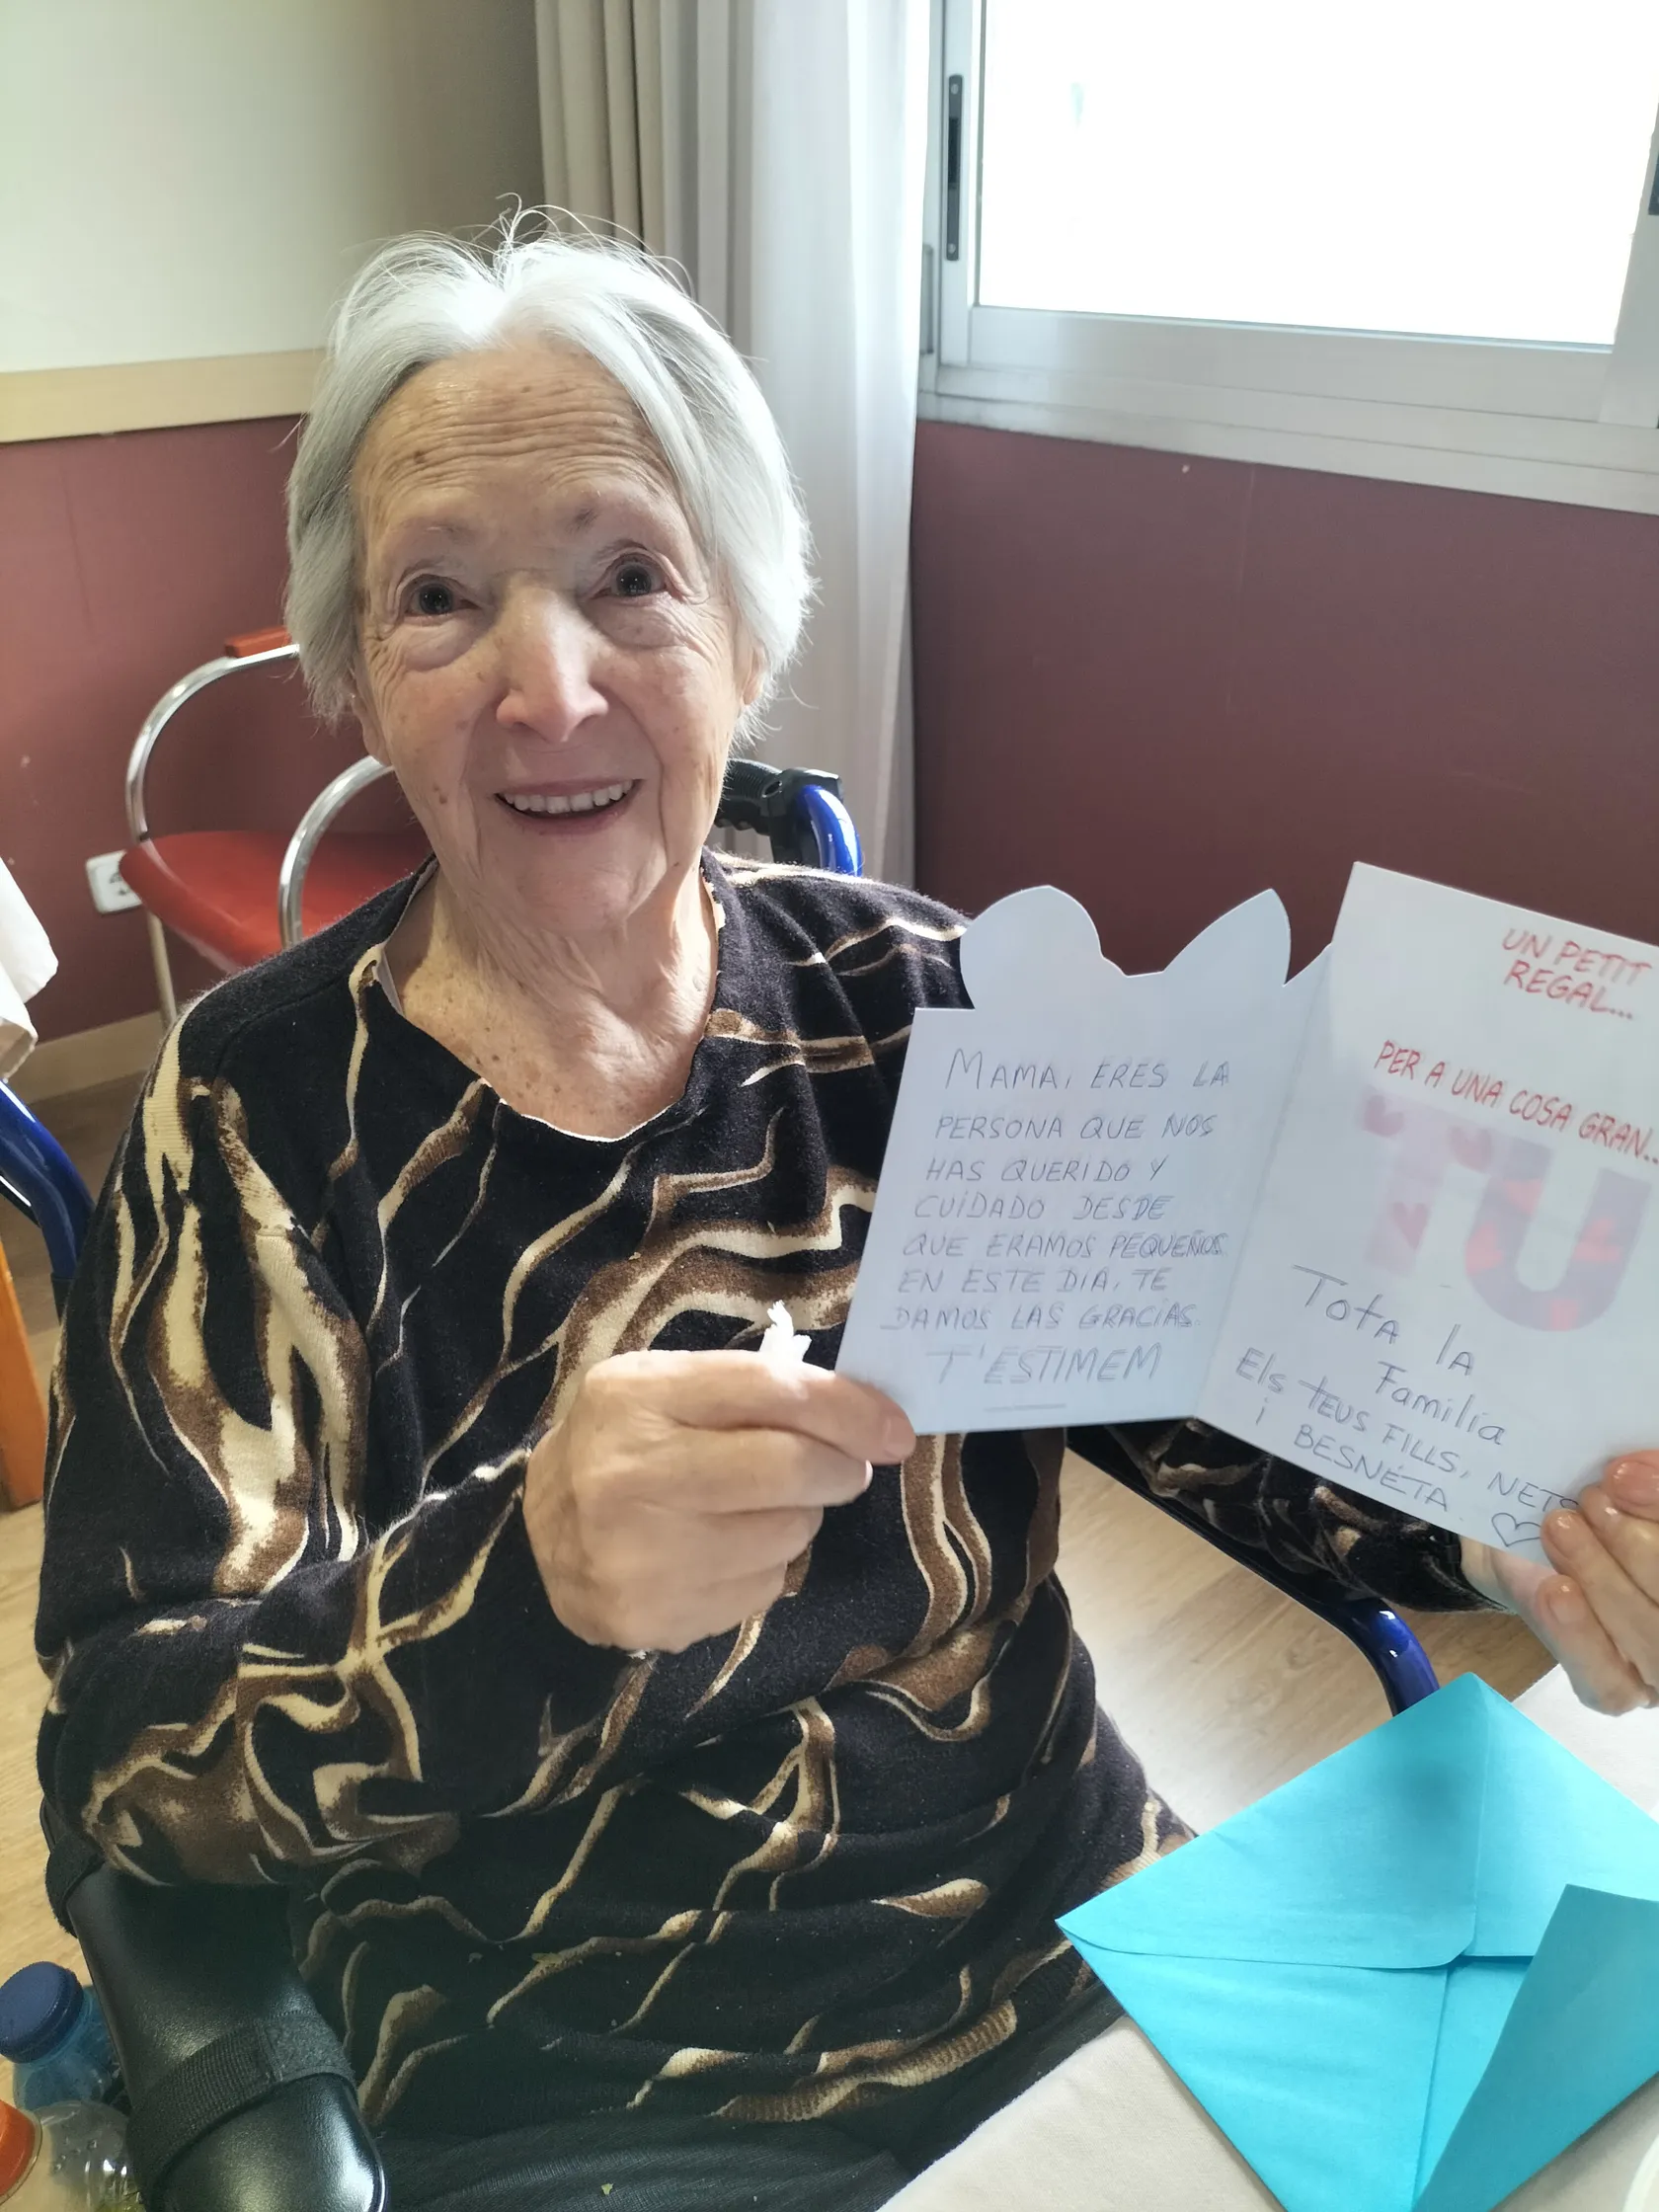 MAMA, ERES LA
PERSONA QUE NOS
HAS QUERIDO Y
CUIDADO DESDE
QUE ERAMOS PEQUEÑOS.
EN ESTE DIA, TE
DAMOS LAS GRACIAS.
T'ESTIMEM
UN PETIT
REGAL...
PER A UNA COSA GRAN...
TU
Tota la
Familia
Els teus fills, nets
i BESNÉTA